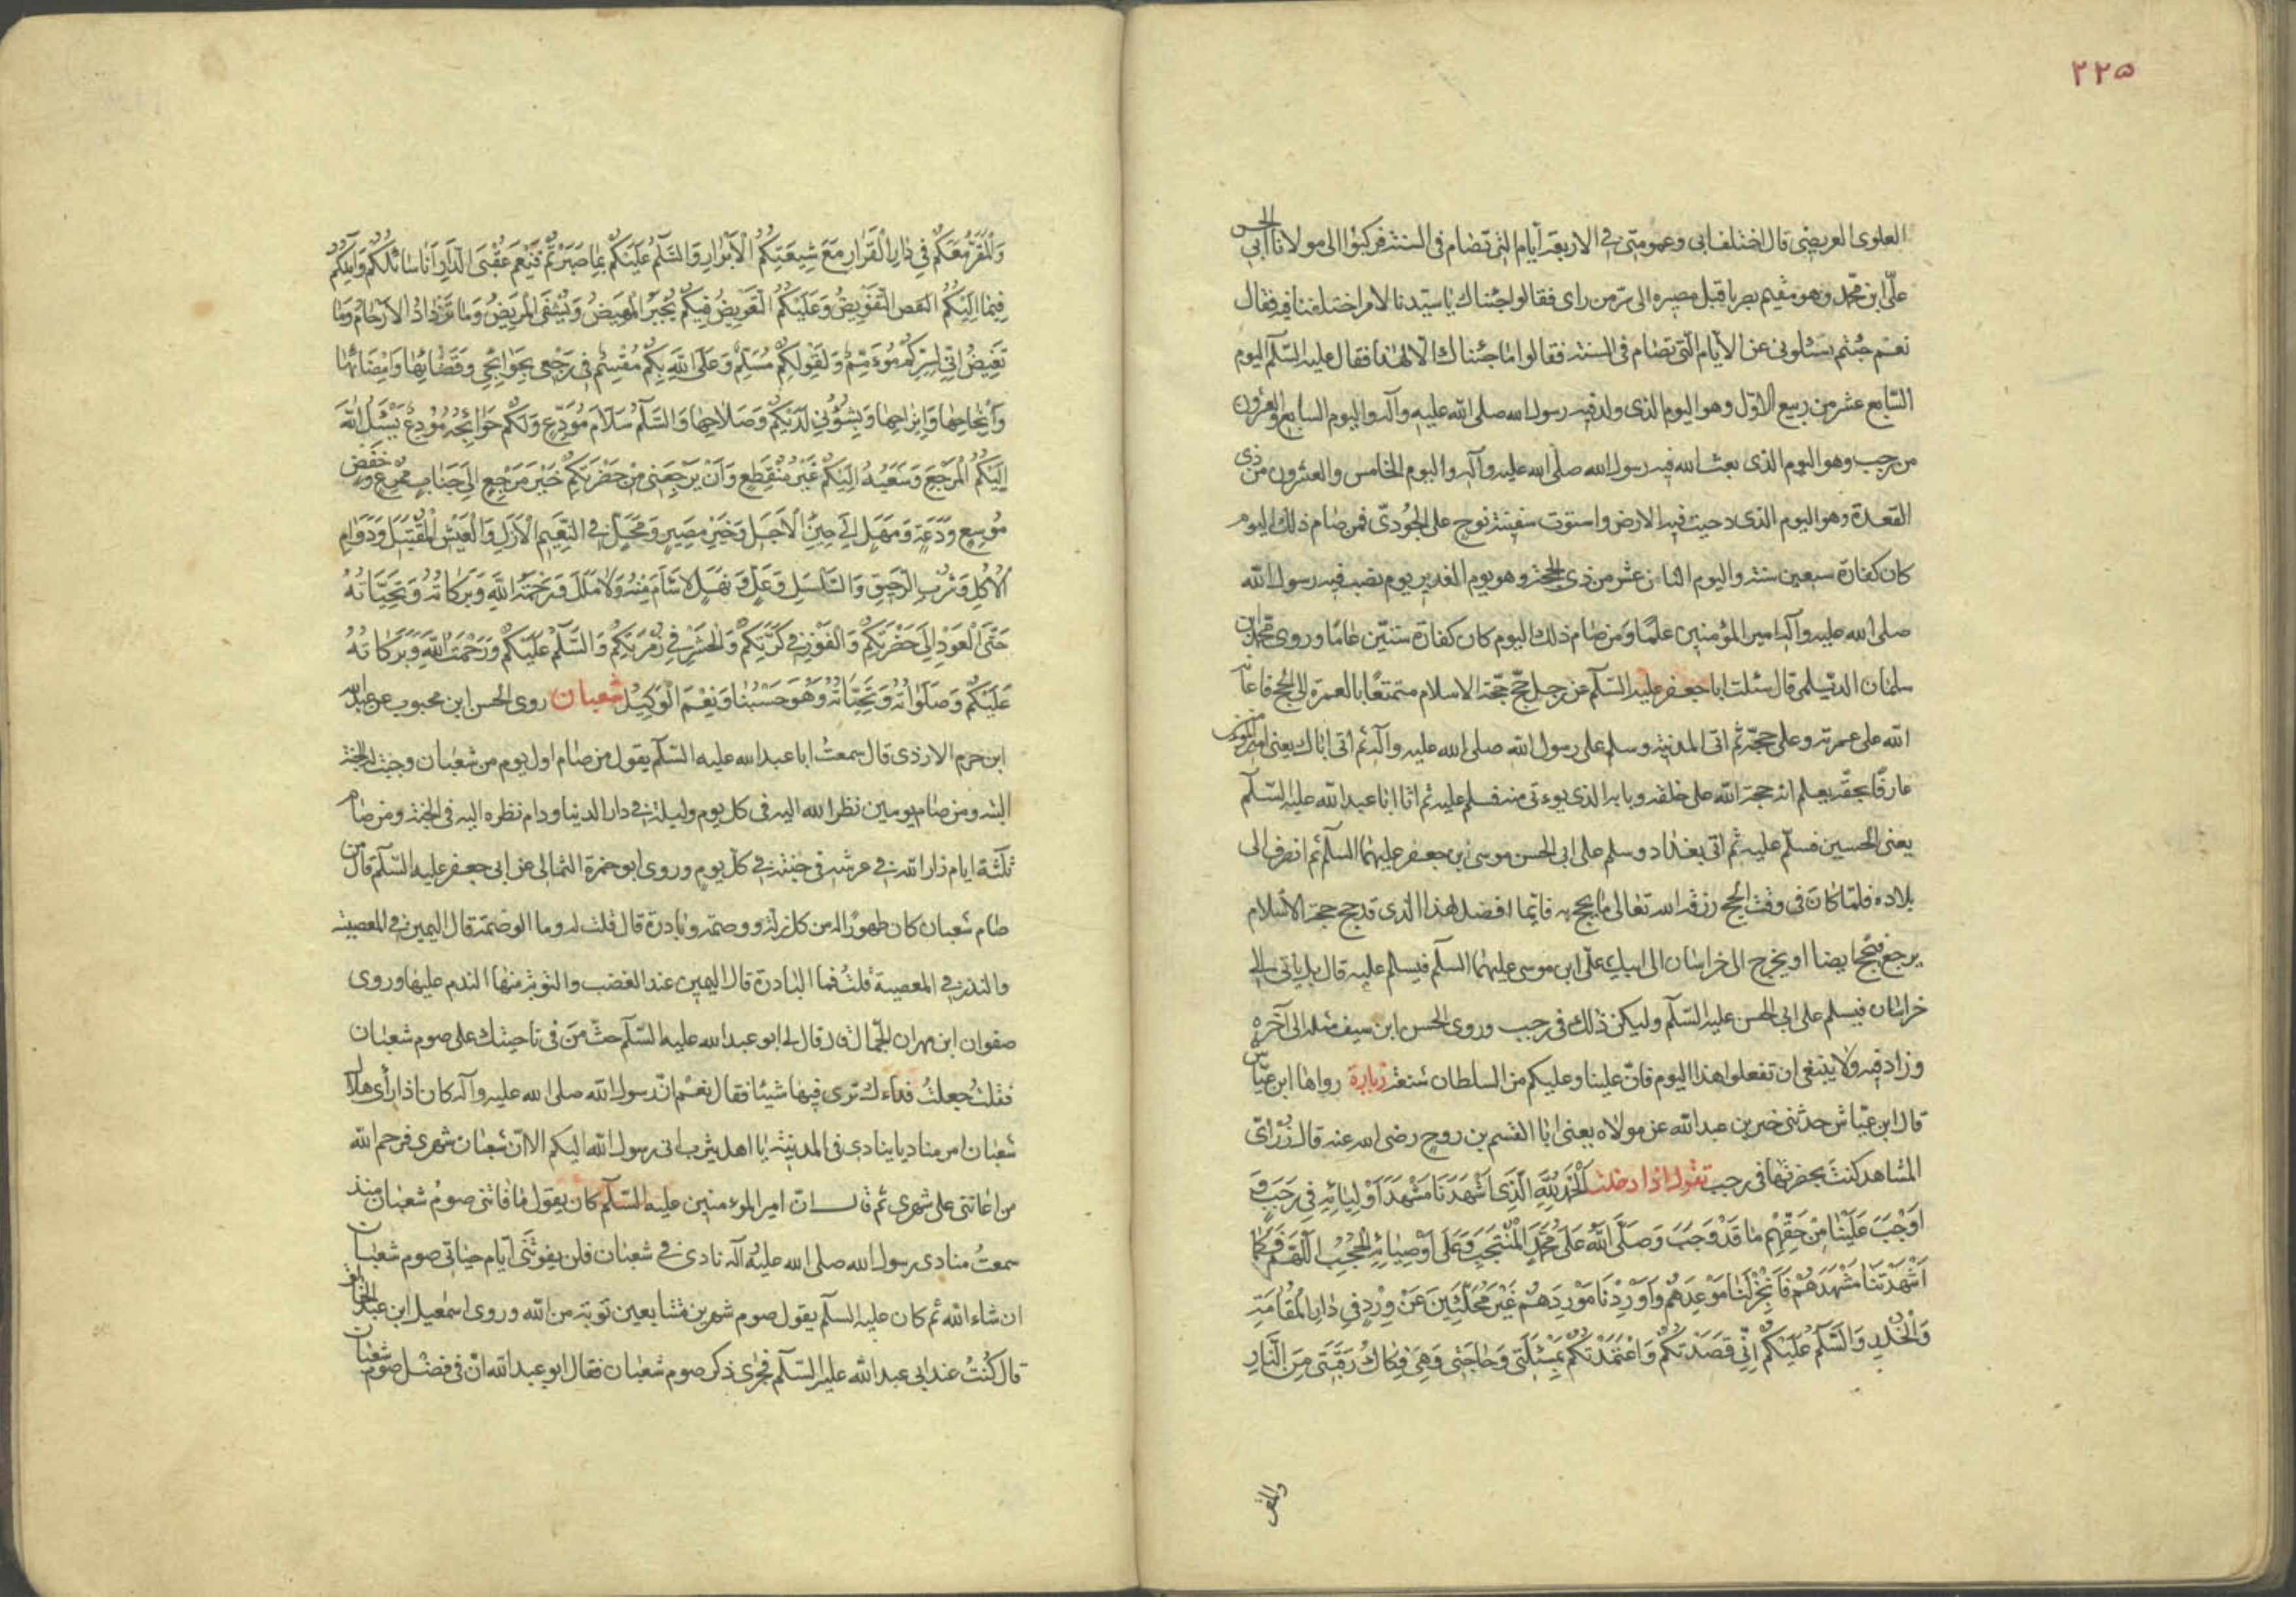 ٢٢٥
العلوى العريضى قال اختلف ابى وعمومتى فى الاربعة ايام التى تصام فى السنة فركبوا الى مولانا ابى الحسن
علىّ ابن محمّد وهو مقيم بصريا قبل مصيره الى سر من راى فقالوا جئناك يا سيّدنا لامر اختلفنا فيه فقال
نعم جئتم تسئلونى عن الايام الّتى تصام فى السنة فقالوا ما جئناك الا لهذا فقال عليه السّلم اليوم
السّابع عشر من ربيع الاوّل وهو اليوم الذى ولد فيه رسول الله صلى الله عليه وآله واليوم السابع والعشرون
من رجب وهو اليوم الذى بعث الله فيه رسول الله صلّى الله عليه وآله واليوم الخامس والعشرون من ذى
القعدة وهو اليوم الذى دحيت فيه الارض واستوت سفينة نوح على الجُودىّ فمن صام ذلك اليوم
كان كفارة سبعين سنة واليوم الثامن عشر من ذى الحجة وهو يوم الغدير يوم نصب فيه رسول الله
صلى الله عليه وآله امير المؤمنين علمًا ومن صام ذلك اليوم كان كفارة ستّين عامًا وروى محمد بن
سلمان الديلمى قال سئلت ابا جعفر عليه السّلم عن رجل حجّ حجّة الاسلام متمتعًا بالعمرة الى الحج فاعانه
الله على عمرته وعلى حجّه ثم اتى المدينة وسلم على رسول الله صلى الله عليه وآله ثم اتى اباك يعنى امير المؤمنين
عارفًا بحقّه يعلم انه حجة الله على خلقه وبابه الذى يوءتى منه فسلم عليه ثم اتا ابا عبد الله عليه السّلم
يعنى الحسين فسلّم عليه ثم اتى بغداد وسلم على ابى الحسن موسى بن جعفر عليهما السلم ثم انصرف الى
بلاده فلمّا كان فى وقت الحج رزقه الله تعالى ما يحج به فايّما افضل لهذا الذى قد حج حجة الاسلام
يرجع فيحج ايضا او يخرج الى خراسان الى ابيك علىّ ابن موسى عليهما السلم فيسلم عليه قال بل ياتى الى
خراسان فيسلم على ابى الحسن عليه السّلم وليكن ذلك فى رجب وروى الحسن ابن سيف مثله الى آخره
وزاد فيه ولا ينبغى ان تفعلوا هذا اليوم فانّ علينا وعليكم من السلطان شنعة زيارة رواها ابن عيّاش
قال ابن عيّاش حدثنى خير بن عبد الله عن مولاه يعنى ابا القسم بن روح رضى الله عنه قال زُرْ اىّ
المشاهد كنتَ بحضرتها فى رجب تقول اذا دخلت اَلْحَمْدُ لِلّهِ الَّذِى اَشْهَدَنَا مَشْهَدَ اَوْلِيَائِهِ فِى رَجَبٍ وَ
اَوْجَبَ عَلَيْنَا مِنْ حَقِّهِمْ مَا قَدْ وَجَبَ وَصَلَّى اللهُ عَلَى مُحَمَّدٍ الْمُنْتَجَبِ وَعَلَى اَوْصِيَائِهِ الْحُجُبِ اَللّهُمَّ فَكَمَا
اَشْهَدْتَنَا مَشْهَدَهُمْ فَاَنْجِزْ لَنَا مَوْعِدَهُمْ وَاَوْرِدْنَا مَوْرِدَهُمْ غَيْرَ مُحَلَّئِينَ عَنْ وِرْدٍ فِى دَارِ الْمُقَامَةِ
وَالْخُلْدِ وَالسَّلَمُ عَلَيْكُمْ اِنِّى قَصَدْتُكُمْ وَاعْتَمَدْتُكُمْ بِمَسْئَلَتِى وَحَاجَتِى وَهِىَ فِكَاكُ رَقَبَتِى مِنَ النَّارِ
والمقر
وَالْمَقَرُّ مَعَكُمْ فِى دَارِ الْقَرَارِ مَعَ شِيعَتِكُمُ الْاَبْرَارِ وَالسَّلَمُ عَلَيْكُمْ بِمَا صَبَرْتُمْ فَنِعْمَ عُقْبَى الدَّارِ اَنَا سَائِلُكُمْ وَآمِلُكُمْ
فِيمَا اِلَيْكُمُ التَّفْوِيضُ وَعَلَيْكُمُ التَّعْوِيضُ فَبِكُمْ يُجْبَرُ الْمَهِيضُ وَيُشْفَى الْمَرِيضُ وَمَا تَزْدَادُ الْاَرْحَامُ وَمَا
تَغِيضُ اِنِّى بِسِرِّكُمْ مُوءْمِنٌ وَلِقَوْلِكُمْ مُسَلِّمٌ وَعَلَى اللهِ بِكُمْ مُقْسِمٌ فِى رَجْعِى بِحَوَائِجِى وَقَضَائِهَا وَاِمْضَائِهَا
وَاِنْجَاحِهَا وَاِبْرَاحِهَا وَبِشُؤُنِى لَدَيْكُمْ وَصَلَاحِهَا وَالسَّلَمُ سَلَامَ مُوَدِّعٍ وَلَكُمْ حَوَائِجَهُ مُودِعٌ يَسْئَلُ اللهَ
اِلَيْكُمُ الْمَرْجَعَ وَسَعْيُهُ اِلَيْكُمْ غَيْرُ مُنْقَطِعٍ وَاَنْ يَرْجِعَنِى مِنْ حَضْرَتِكُمْ خَيْرَ مَرْجِعٍ اِلَى جَنَابٍ مُمْرِعٍ وَخَفْضٍ
مُوسِعٍ وَدَعَةٍ وَمَهَلٍ اِلَى حِينِ الْاَجَلِ وَخَيْرِ مَصِيرٍ وَمَحَلٍّ فِى النَّعِيمِ الْاَزَلِ وَالْعَيْشِ الْمُقْتَبَلِ وَدَوَامِ
الْاُكُلِ وَشُرْبِ الرَّحِيقِ وَالسَّلْسَلِ وَعَلٍّ وَنَهَلٍ لَا سَاَمَ مِنْهُ وَلَا مَلَلَ وَرَحْمَةُ اللهِ وَبَرَكَاتُهُ وَتَحِيَّاتُهُ
حَتَّى الْعَوْدِ اِلَى حَضْرَتِكُمْ وَالْفَوْزِ فِى كَرَّتِكُمْ وَالْحَشْرِ فِى زُمْرَتِكُمْ وَالسَّلَمُ عَلَيْكُمْ وَرَحْمَةُ اللهِ وَبَرَكَاتُهُ
عَلَيْكُمْ وَصَلَوَاتُهُ وَتَحِيَّاتُهُ وَهُوَ حَسْبُنَا وَنِعْمَ الْوَكِيلُ شعبان روى الحسن ابن محبوب عن عبد الله
ابن حزم الازدى قال سمعتُ ابا عبد الله عليه السّلم يقول من صام اول يوم من شعبان وجبت له الجنة
البتة ومن صام يومين نظر الله اليه فى كل يوم وليلة فى دار الدنيا ودام نظره اليه فى الجنة ومن صام
ثلثة ايام زار الله فى عرشه فى جنته فى كلّ يوم وروى ابو حمزة الثمالى عن ابى جعفر عليه السّلم قال من
صام شعبان كان طهورًا له من كل زلة ووصمة وبادرة قال قلت له وما الوصمة قال اليمين فى المعصية
والنذر فى المعصية قلتُ فما البادرة قال اليمين عند الغضب والتوبة منها الندم عليها وروى
صفوان ابن مهران الجمّال قال قال لى ابو عبد الله عليه السّلم حثّ مَن فى ناحيتك على صوم شعبان
فقلتُ جعلتُ فداءك ترى فيها شيئا فقال نعَم انّ رسول الله صلى الله عليه وآله كان اذا رأى هلال
شعبان امر مناديا ينادى فى المدينة يا اهل يثرب انى رسول الله اليكم الا انّ شعبان شهرى فرحم الله
من اعاننى على شهرى ثم قال انّ امير الموءمنين عليه السّلم كان يقول ما فاتنى صومُ شعبان منذ
سمعتُ منادى رسول الله صلى الله عليه وآله نادى فى شعبان فلن يفوتَنى ايّام حياتى صوم شعبان
ان شاء الله ثم كان عليه السلم يقول صوم شهرين متتابعين توبة من الله وروى اسمعيل ابن عبد الخالق
قال كُنتُ عند ابى عبد الله عليه السّلم فجرى ذكر صوم شعبان فقال ابو عبد الله انّ فى فضل صوم شعبان